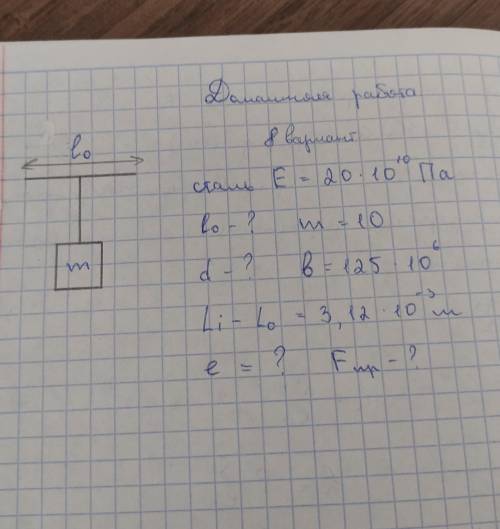 Домашняя работа
8 вариант
l₀
сталь E = 20·10¹⁰ Па
l₀ - ? m = 10
m
d - ? в = 125·10⁶
Li - L₀ = 3,12·10⁻³ м
e = ? Fпр - ?